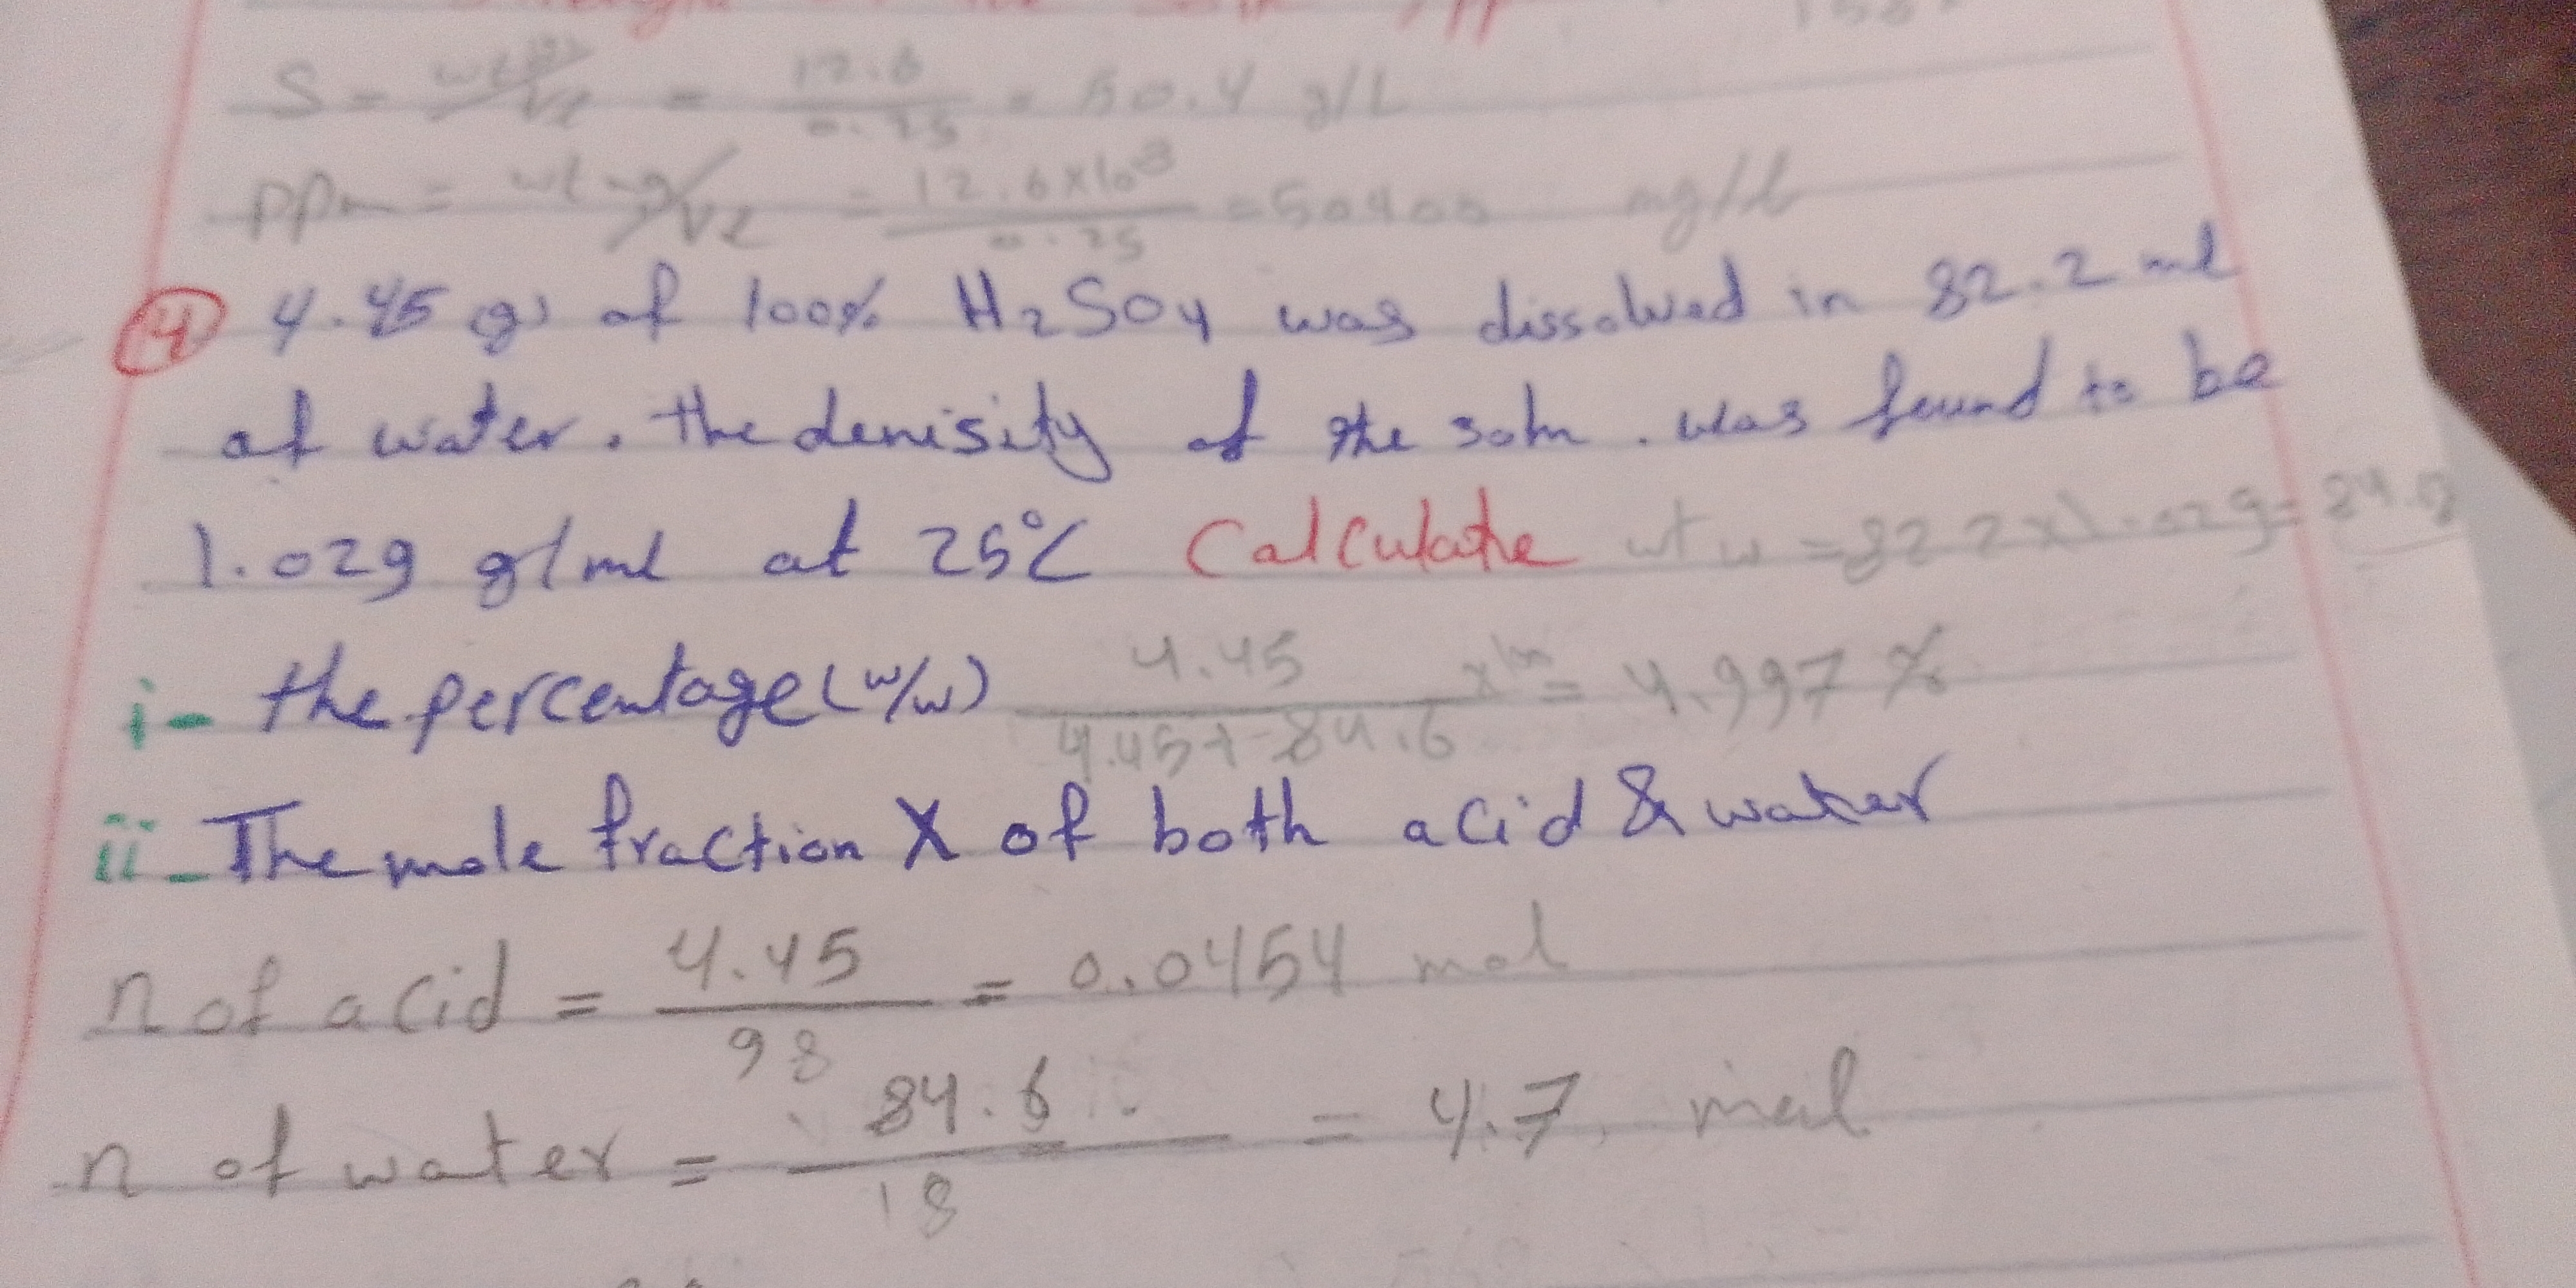 S = wt(g)/VL = 12.6/0.25 = 50.4 g/L
ppm = wt mg/VL = 12.6x10³/0.25 = 50400 mg/L
④ 4.45 g of 100% H2SO4 was dissolved in 82.2 ml
of water. the denisity of the soln. was found to be
1.029 g/ml at 25°C Calculate wt w = 82.2x1.029 = 84.6
i- the percentage (w/w) 4.45/4.45+84.6 x100 = 4.997 %
ii- The mole fraction X of both acid & water
n of acid = 4.45/98 = 0.0454 mol
n of water = 84.6/18 = 4.7 mol